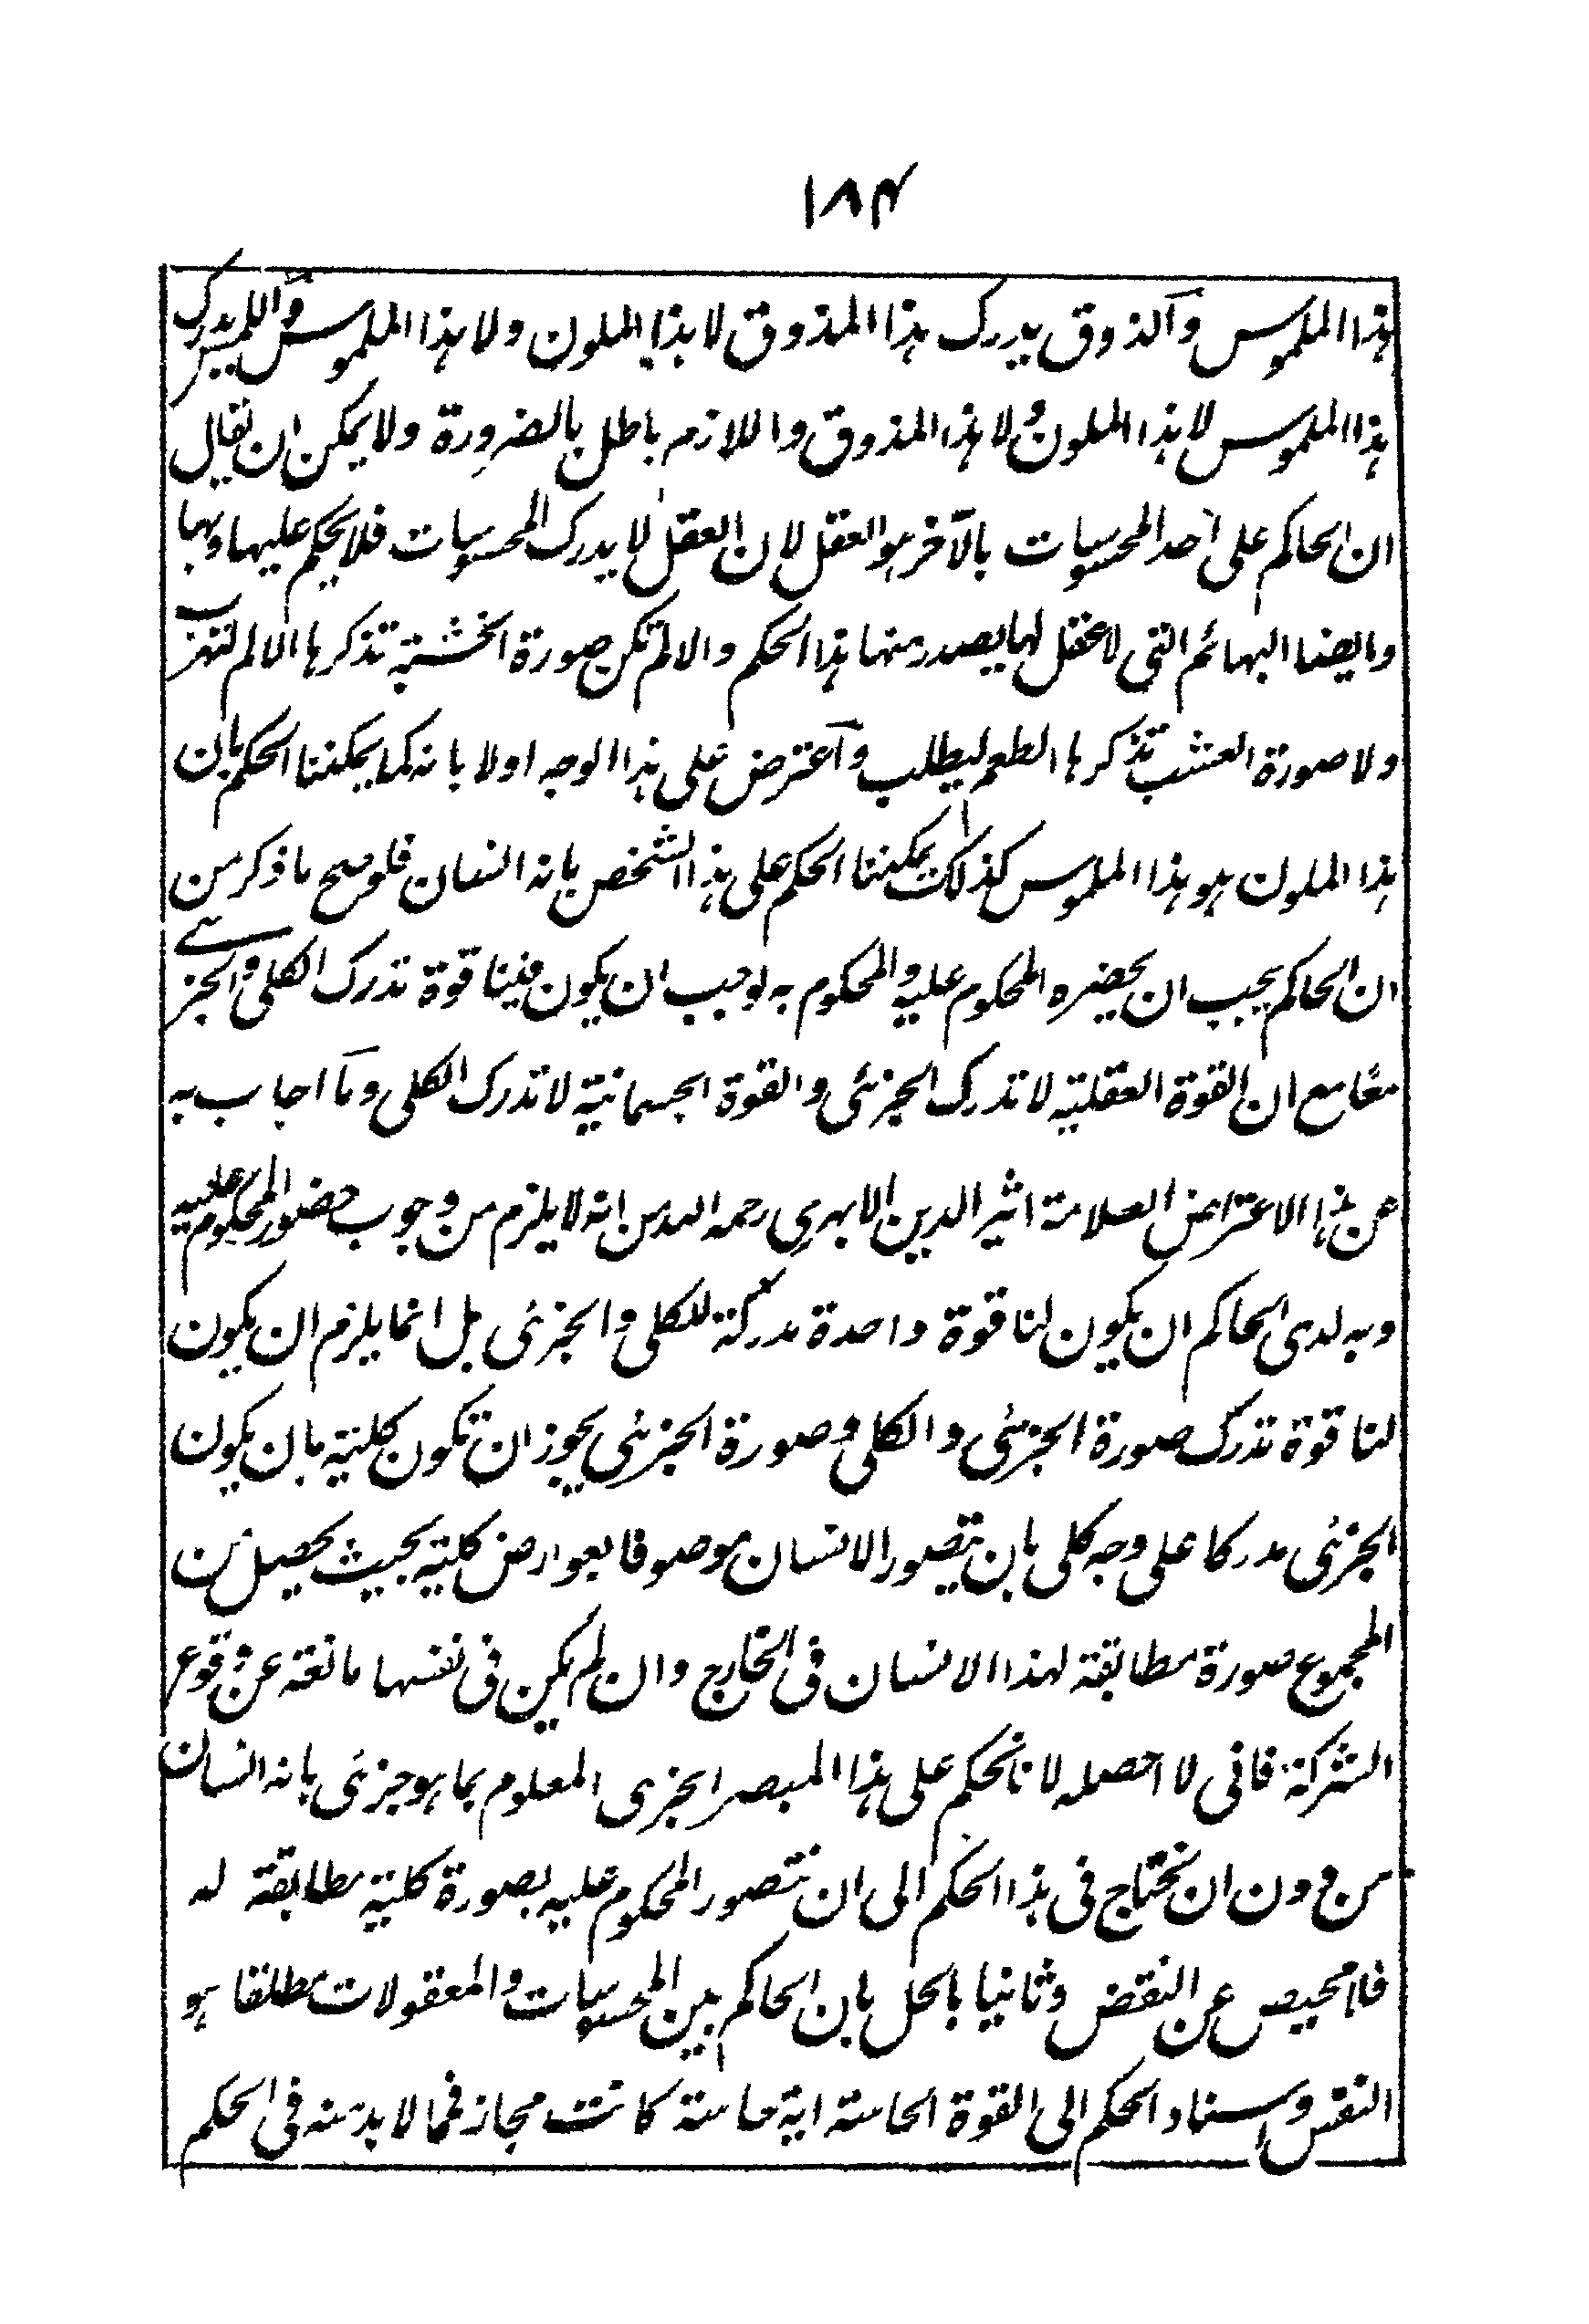 ١٨٤
هذا الملموس والذوق يدرك هذا المذوق لا هذا الملون ولا هذا الملموس واللمس يدرك
هذا الملموس لا هذا الملون ولا هذا المذوق واللازم باطل بالضرورة ولا يمكن ان يقال
ان الحاكم على احد المحسوسات بالآخر هو العقل لان العقل لا يدرك المحسوسات فلا يحكم عليها وبها
وايضا البهائم التى لا عقل لها يصدر منها هذا الحكم والا لم تكن صورة الخشبة تذكرها الالم لتهرب
ولا صورة العشب تذكرها الطعم ليطلب وآعترض على هذا الوجه اولا بانه كما يمكننا الحكم بان
هذا الملون هو هذا الملموس كذلك يمكننا الحكم على هذا الشخص بانه انسان فلو صح ما ذكر من
ان الحاكم يجب ان يحضره المحكوم عليه والمحكوم به لوجب ان يكون فينا قوة تدرك الكلى والجزئى
معًا مع ان القوة العقلية لا تدرك الجزئى والقوة الجسمانية لا تدرك الكلى ومآ اجاب به
عن هذا الاعتراض العلامة اثير الدين الابهرى رحمه الله من انه لا يلزم من وجوب حضور المحكوم عليه
وبه لدى الحاكم ان يكون لنا قوة واحدة مدركة للكلى والجزئى بل انما يلزم ان يكون
لنا قوة تدرك صورة الجزئى والكلى وصورة الجزئى يجوز ان تكون كلية بان يكون
الجزئى مدركا على وجه كلى بان يتصور الانسان موصوفا بعوارض كلية بحيث يحصل من
المجموع صورة مطابقة لهذا الانسان فى الخارج وان لم يكن فى نفسها مانعة عن وقوع
الشركة فانى لا احصله لانا نحكم على هذا المبصر الجزى المعلوم بما هو جزئى بانه انسان
من دون ان نحتاج فى هذا الحكم الى ان نتصور المحكوم عليه بصورة كلية مطابقة له
فلا محيص عن النقض وثانيا بالحل بان الحاكم بين المحسوسات والمعقولات مطلقا هو
النفس واسناد الحكم الى القوة الحاسة اية حاسة كانت مجاز فمما لا بد منه فى الحكم